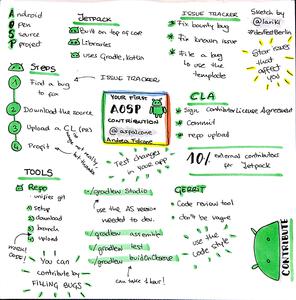 Android
Open
Source
Project
JETPACK
Built on top of core
Libraries
uses Gradle, Kotlin
ISSUE TRACKER
Fix bounty bug
Fix known issue
File a bug
to use the
template
Sketch by
#devfestBerlin
Star issues
that affect
you
STEPS
1 Find a bug
to fix
ISSUE TRACKER
2 Download the source
3 Upload a CL (PR)
4 Profit
YOUR FIRST
AOSP
CONTRIBUTION
Test changes
in your app
CLA
Sign Contributor License Agreement
Commit
repo upload
10% external contributors
for Jetpack
TOOLS
Repo
setup
download
branch
upload
You can
contribute by
FILLING BUGS
./gradlew Studio
use the AS version
needed to dev.
./gradlew assemble
./gradlew test
./gradlew buildOnServer
can take 1 hour!
GERRIT
Code review tool
don't be vague
use the
code style
CONTRIBUTE